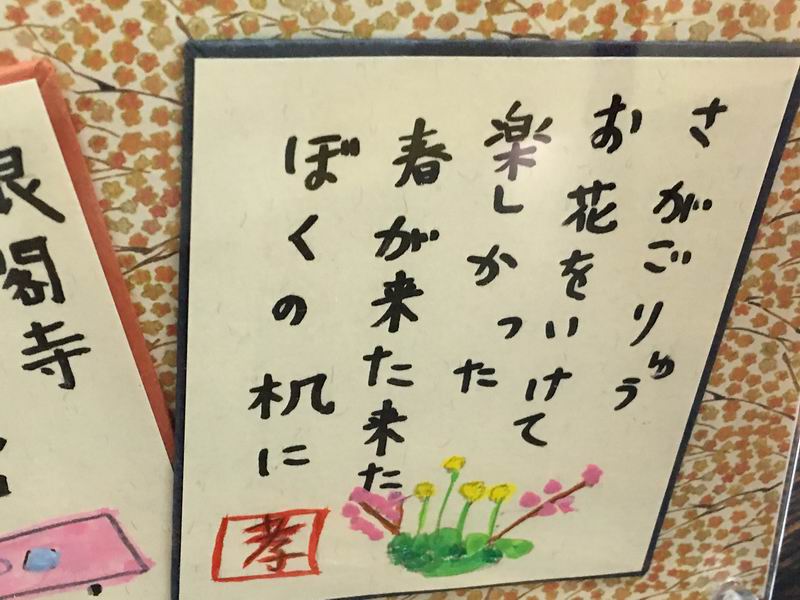 さがごりゅう
お花をいけて
楽しかった
春が来た来た
ぼくの机に
孝
閣寺